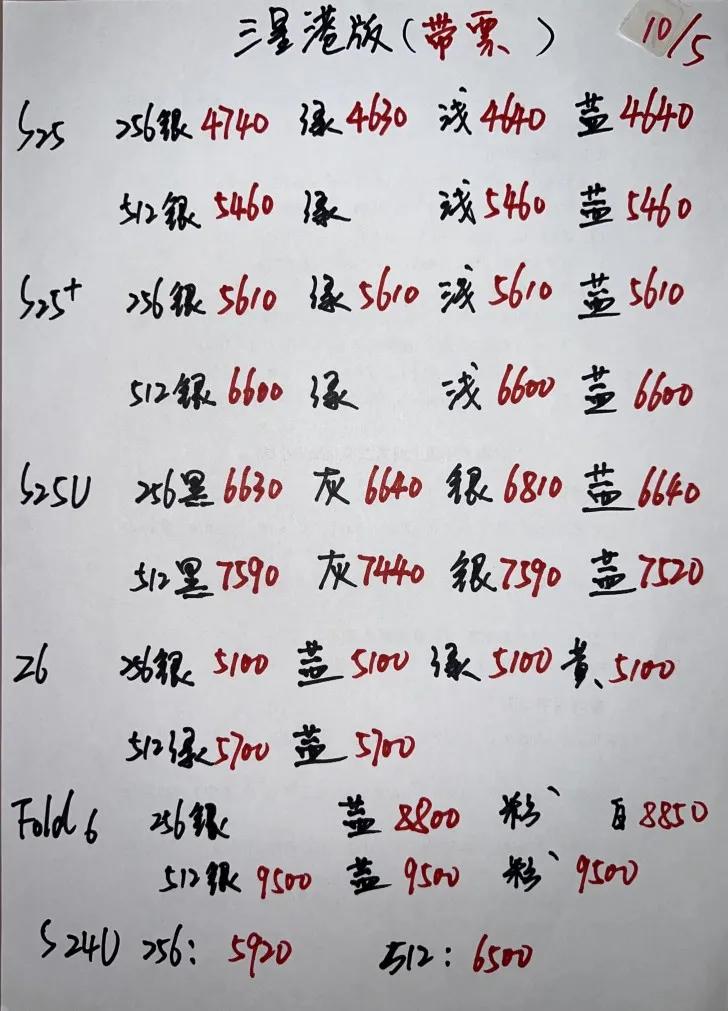 三星港版(带票) 10/5
S25 256银4740 绿4630 浅4640 蓝4640
512银5460 绿 浅5460 蓝5460
S25+ 256银5610 绿5610 浅5610 蓝5610
512银6600 绿 浅6600 蓝6600
S25U 256黑6630 灰6640 银6810 蓝6640
512黑7590 灰7440 银7590 蓝7520
Z6 256银5100 蓝5100 绿5100 黄、5100
512绿5700 蓝5700
Fold6 256银 蓝8800 粉、 白8850
512银9500 蓝9500 粉、9500
S24U 256: 5920 512: 6500